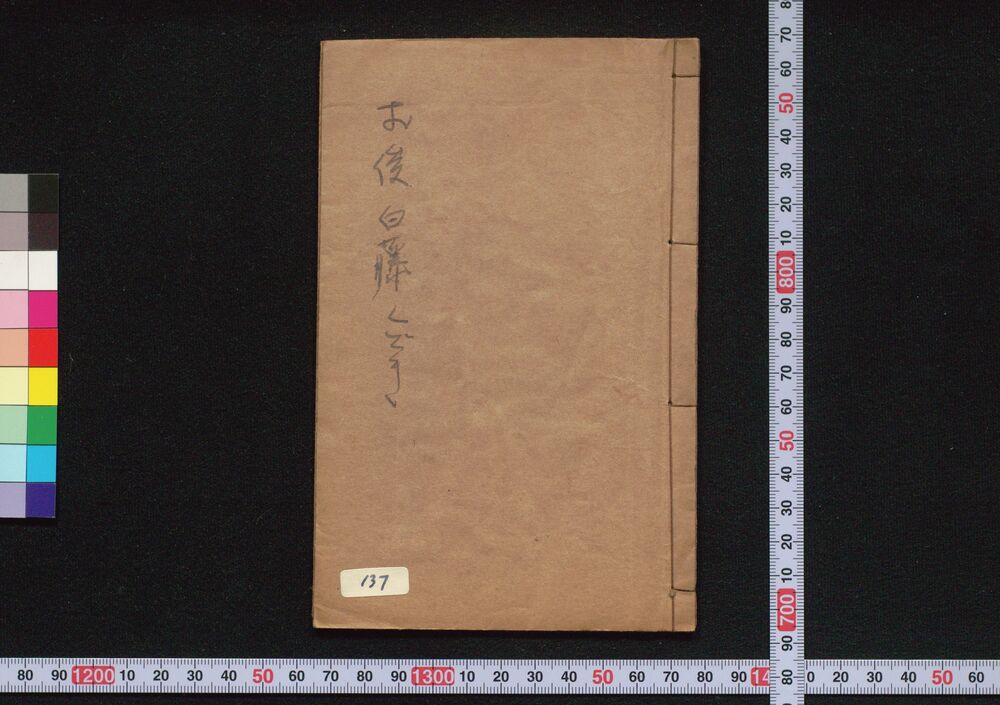 お俊白藤くどき
137
70 60 50 40 30 20 10 800 90 80 70 60 50 40 30 20 10 700 90 80
80 90 1200 10 20 30 40 50 60 70 80 90 1300 10 20 30 40 50 60 70 80 90 14 0 20 30 40 50 60